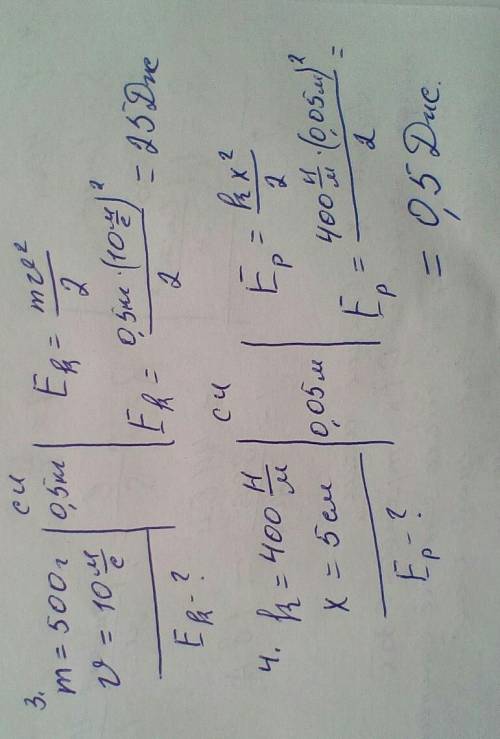 3.
m = 500г | СИ 0,5кг | E_k = mv²/2
v = 10 м/с | E_k = 0,5кг·(10 м/с)²/2 = 25 Дж
E_k - ?
4. k = 400 Н/м | СИ | E_p = kx²/2
x = 5 см | 0,05 м | E_p = 400 Н/м·(0,05м)²/2 =
E_p - ? = 0,5 Дж.